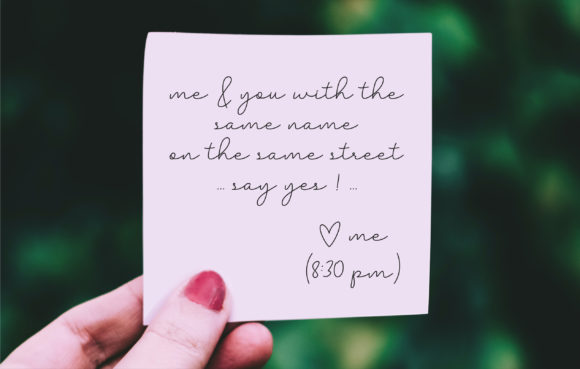 me & you with the
same name
on the same street
... say yes ! ...
♡ me
(8:30 pm)